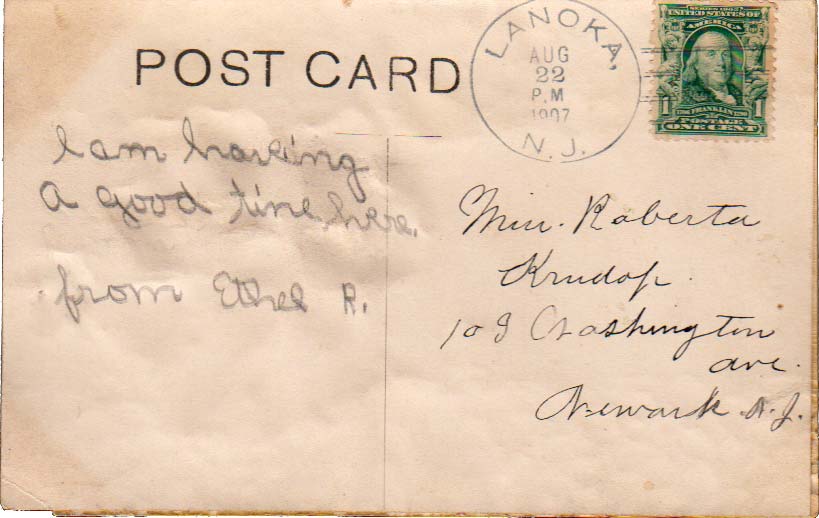 POST CARD
LANOKA,
AUG
22
P.M
1907
N. J.
SERIES 1902
UNITED STATES OF
AMERICA
1 1706 FRANKLIN 1790 1
POSTAGE
ONE CENT
I am having
a good time here.
from Ethel R.
Miss. Roberta
Krudop.
109 Washington
ave.
Newark N.J.